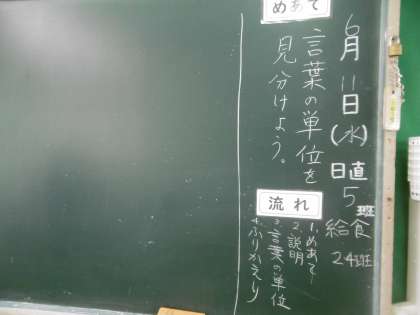 6月11日(水)
日直 5班
給食 24班
めあて
言葉の単位を
見分けよう。
流れ
1.めあて
2.説明
3.言葉の単位
4.ふりかえり